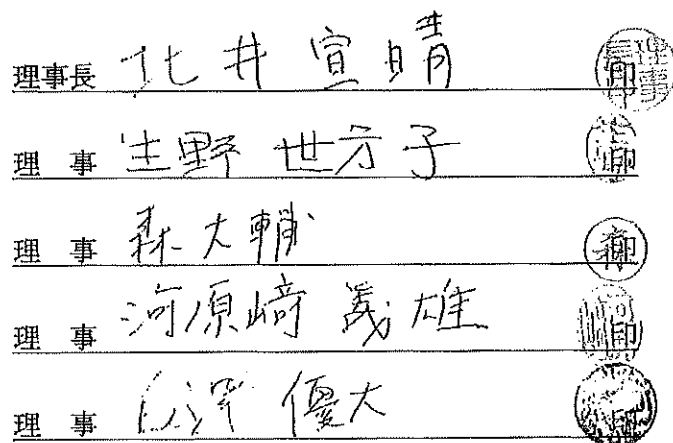 理事長 北井 宣晴 印
理事 生野 世方子 印
理事 森 大輔 印
理事 河原﨑 義雄 印
理事 白澤 優大 印